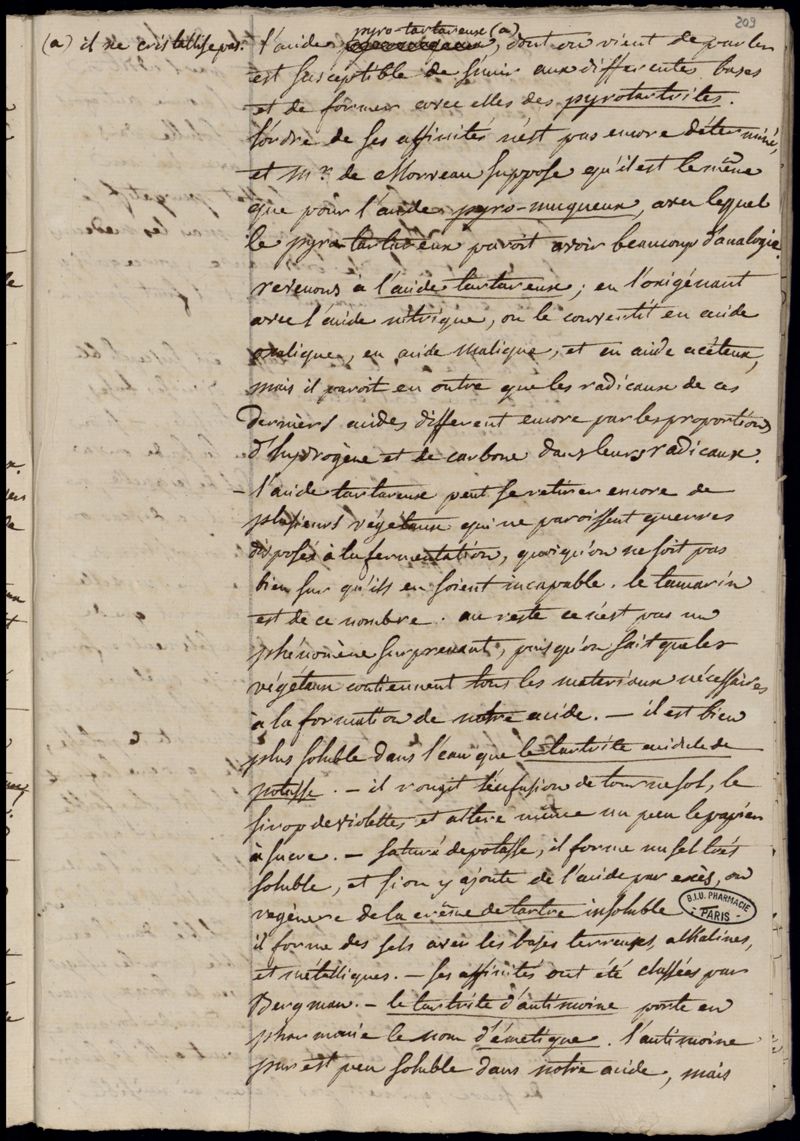 209
(a) il ne cristallise pas.
pyro-tartareux (a)
l'acide , dont on vient de parler
est susceptible de s'unir aux differentes bases
et de former avec elles des pyrotartrites.
l'ordre de ses affinités n'est pas encore déterminé,
et Mr. de Morveau suppose qu'il est le même
que pour l'acide pyro-muqueux, avec lequel
le pyro-tartareux paroit avoir beaucoup d'analogie.
revenons à l'acide tartareux; en l'oxigénant
avec l'acide nitrique, on le convertit en acide
oxalique, en acide malique, et en acide acéteux,
mais il paroit en outre que les radicaux de ces
derniers acides different encore par les proportions
d'hydrogène et de carbone dans leurs radicaux.
- l'acide tartareux peut se retirer encore de
plusieurs végétaux qui ne paroissent guerres
disposés à la fermentation, quoiqu'on ne soit pas
bien sur qu'ils en soient incapable. le tamarin
est de ce nombre. au reste ce n'est pas un
phénomène surprenant, puisqu'on sait que les
végétaux contiennent tous les materiaux nécessaires
à la formation de notre acide. - il est bien
plus soluble dans l'eau que le tartrite acidule de
potasse. - il rougit l'infusion de tournesol, le
sirop de violettes, et altere même un peu le papier
à sucre. - saturé de potasse, il forme un sel très
soluble, et si on y ajoute de l'acide par exès, on
regénere de la crême de tartre insoluble
B.I.U. PHARMACIE
- PARIS -
il forme des sels avec les bases terreuses, alkalines,
et métalliques. - ses affinités ont été classées par
Bergman. - le tartrite d'antimoine porte en
pharmacie le nom d'émetique. l'antimoine
pur est peu soluble dans notre acide, mais